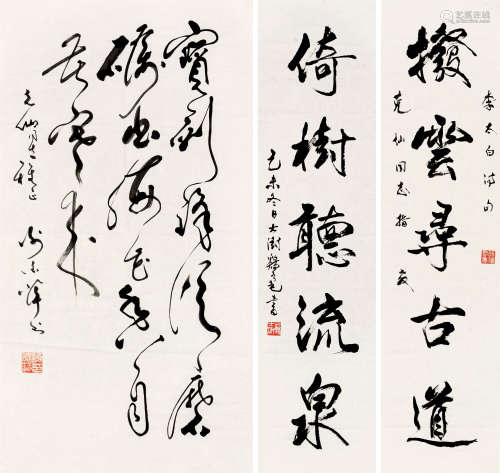 李太白诗句
撥雲尋古道
克仙同志指教
倚樹聽流泉
己未冬日
寶劍鋒從磨
礪出梅花香自
苦寒来
克仙同志雅正
艺狐在线